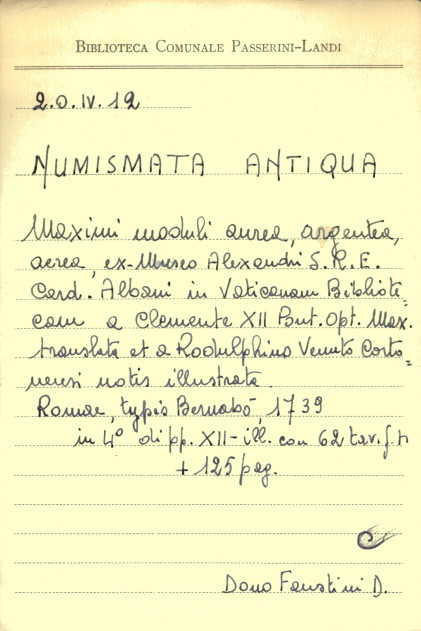 BIBLIOTECA COMUNALE PASSERINI-LANDI
2.O.IV.12
NUMISMATA ANTIQUA
Maximi moduli aurea, argentea,
aerea, ex-Museo Alexandri S.R.E.
Card. Albani in Vaticanam Bibliote=
cam a Clemente XII Pont. Opt. Max.
translata et a Rodulphino Venuto Corto=
nensi notis illustrata.
Romae, typis Bernabò, 1739
in 4° di pp. XII - ill. con 62 tav. f.t.
+ 125 pag.
Dono Faustini D.